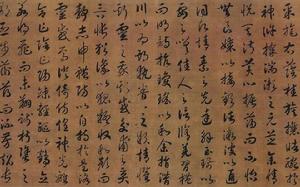 采旄右蔭桂旗攘皓腕於
神滸採湍瀨之玄芝余情
悅其淑美兮心振蕩而不怡
無良媒以接歡兮託微波以通
辭願誠素之先達兮解玉佩以
要之嗟佳人之信脩兮羌習禮
而明詩抗瓊珶以和余兮指潛
川以為期執眷眷之款實兮懼
斯靈之我欺感交甫之棄言
兮悵猶豫而狐疑收和顏以
靜志兮申禮防以自持於是洛
靈感焉徙倚彷徨神光離
合乍陰乍陽竦輕軀以鶴立
若將飛而未翔踐椒塗之郁
烈步蘅薄而流芳超長